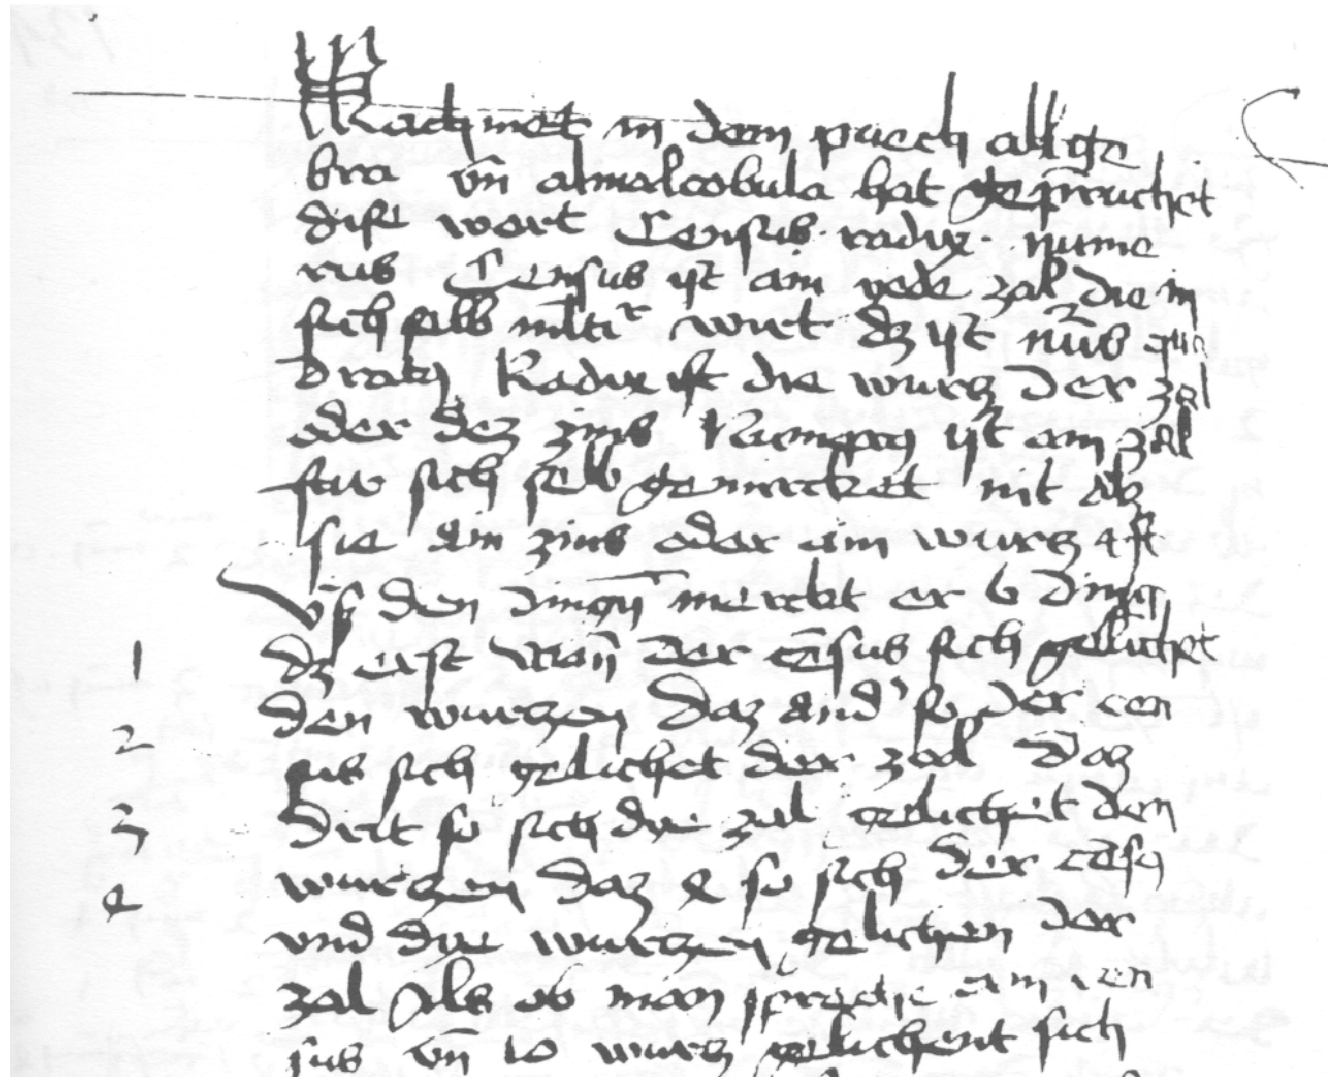 Machmet in dem puech allge
bra vn̄ almalcobula hat gepruchet
dise wort Census. radix. nume
rus Census ist ain yede zal die in
sich selb m̄lticͬ wirt dz ist nūs qua
dratꝯ Radix ist die wurtz der zal
oder dez zins Numerꝯ ist ain zal
fur sich selb gemercket nit alz
sie ain zins oder ain wurtz ist
Vsz den dingn̄ merckt er 6 ding
1 dz erst wan̄ der cēsus sich gelichet
den wurtzen Daz and' so der cen
2 sus sich gelichet der zal Daz
3 drit so sich die zal gelichet den
wurtzen Daz 4 so sich der cēsꝯ
4 vnd die wurtzen gelichen der
zal Als ob man spreche ain cen
sus vn̄ 10 wurtz gelichent sich